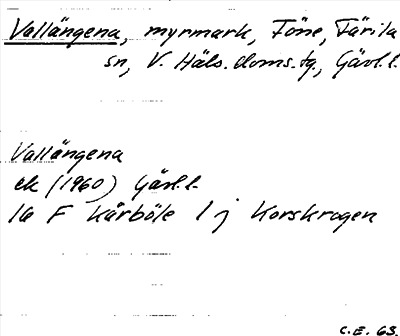 Vallängena, myrmark, Föne, Färila
sn, V. Häls. doms. tg., Gävl. l.
Vallängena
ek (1960) Gävl. l.
16 F Kårböle 1 j Korskrogen
C.E. 63.